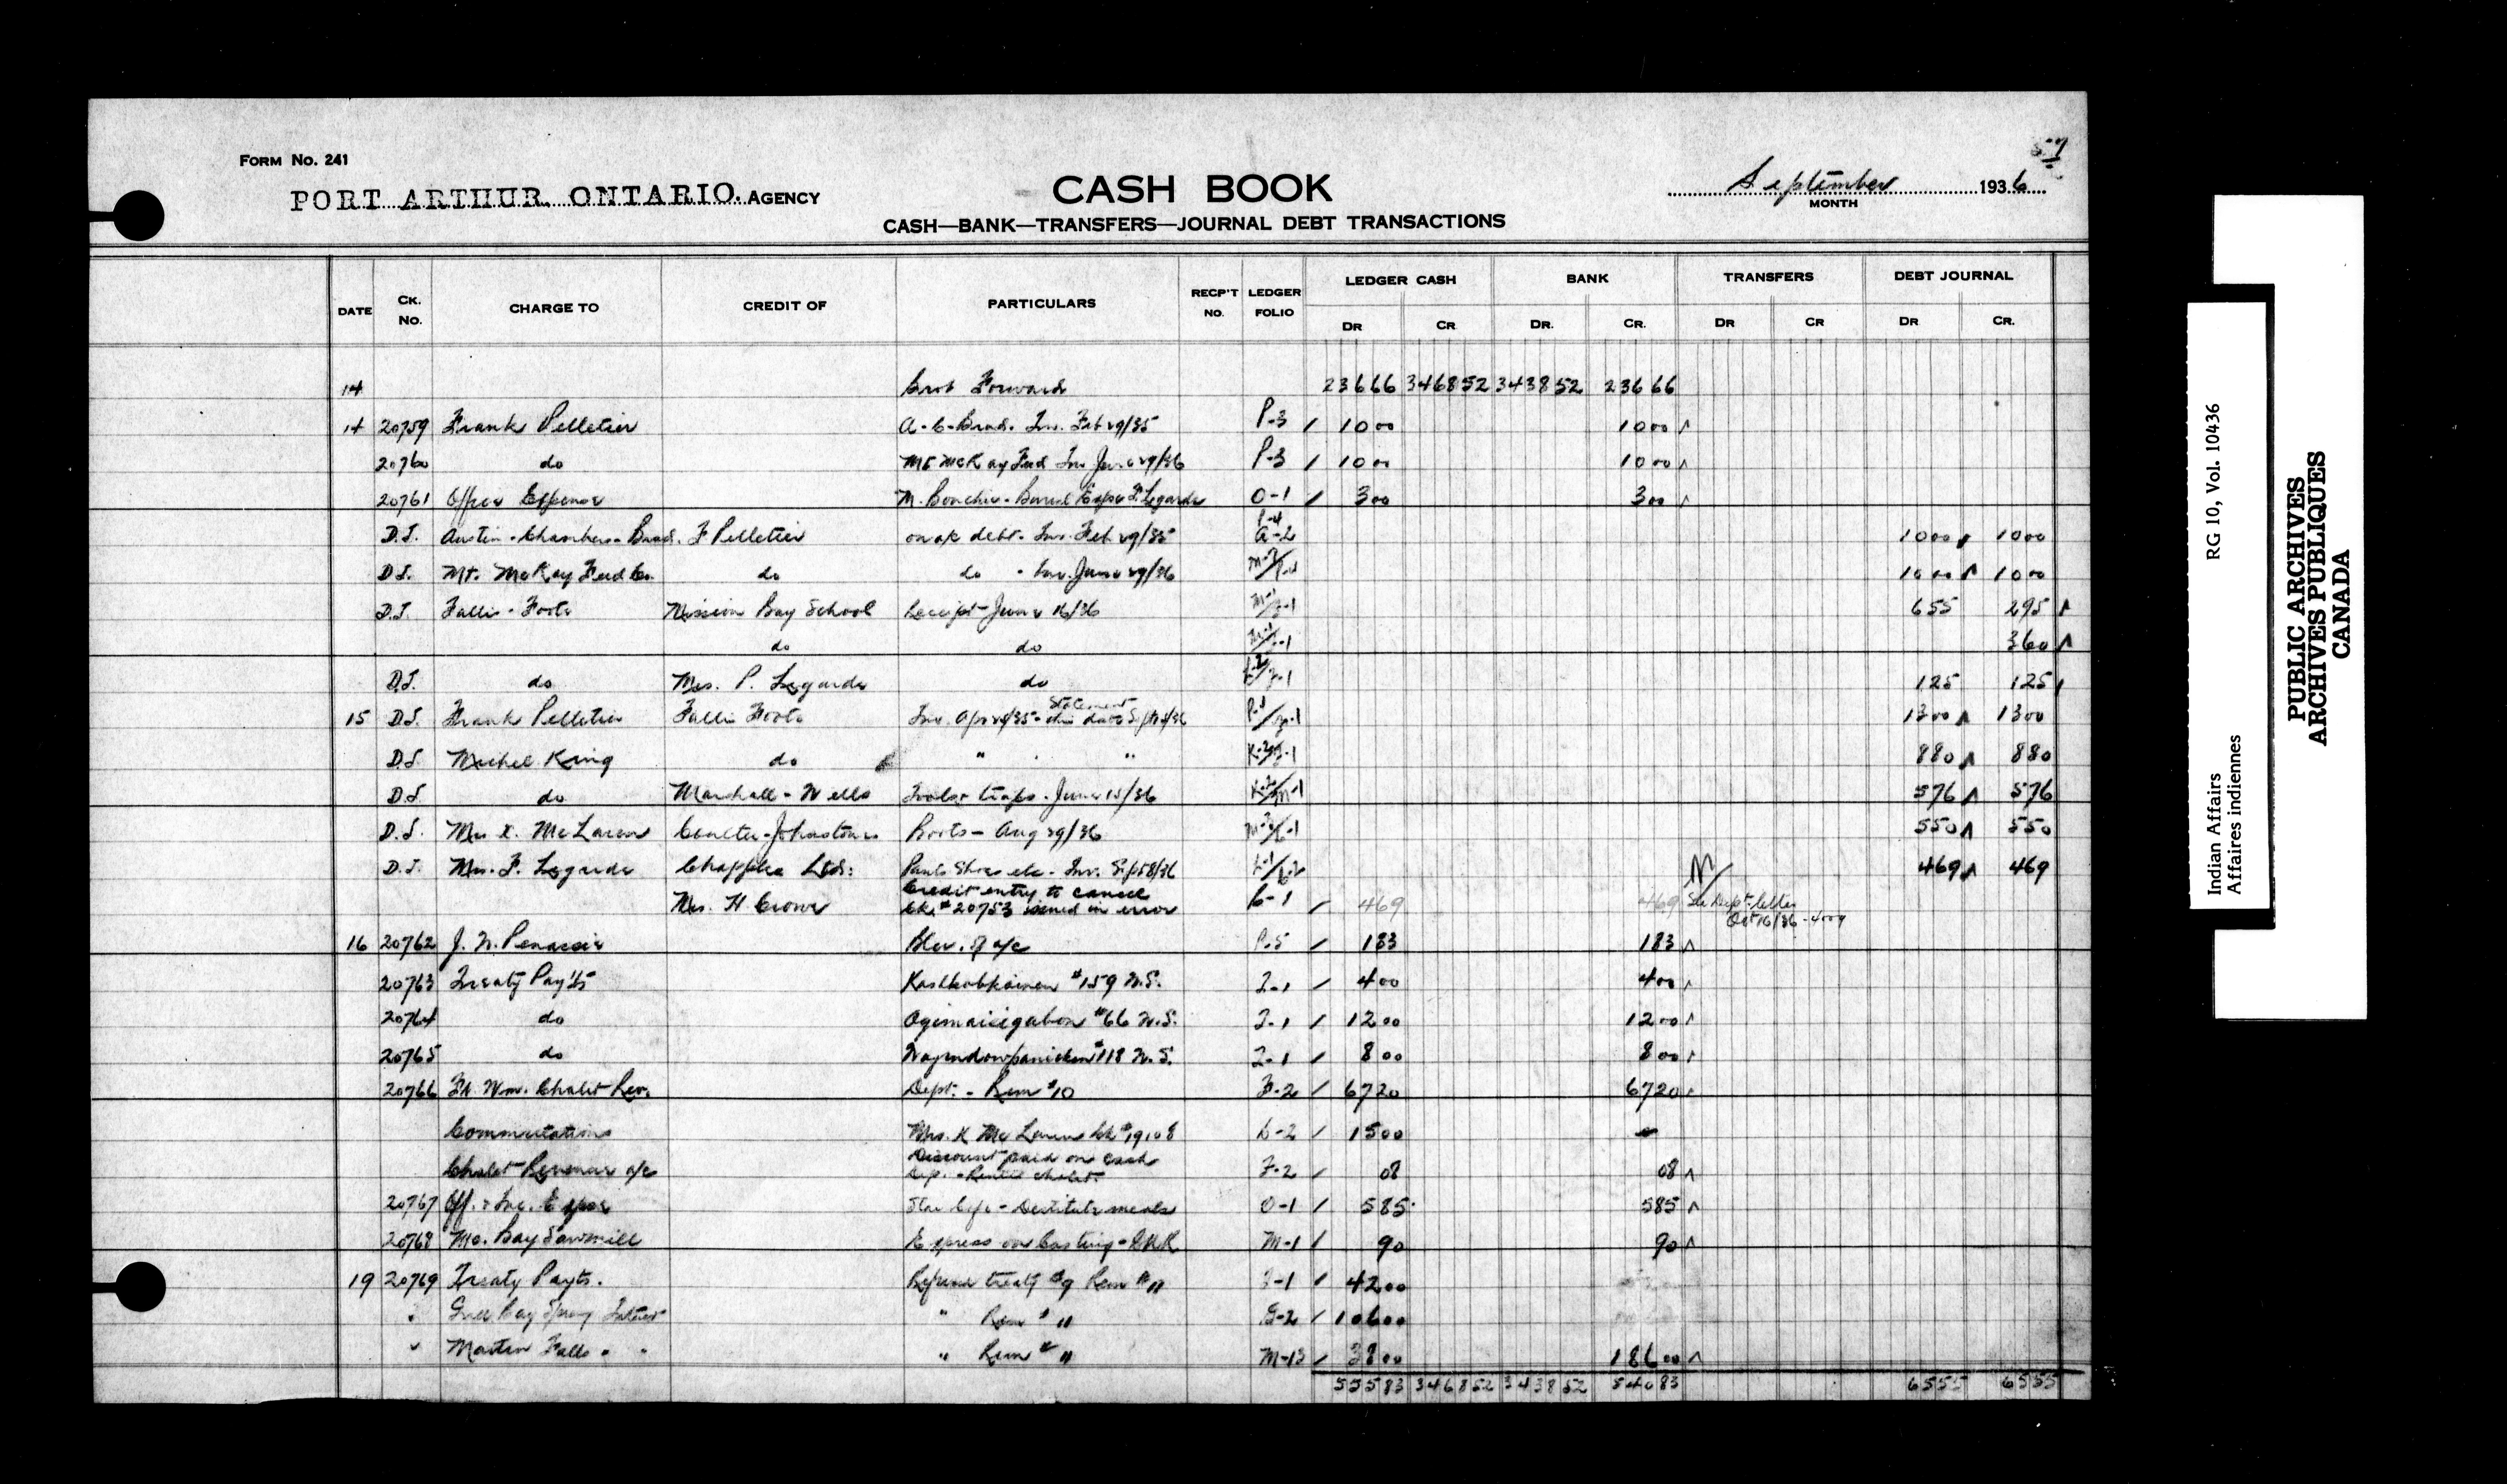 57
FORM NO. 241
PORT ARTHUR, ONTARIO. AGENCY
CASH BOOK
September 1936
MONTH
CASH—BANK—TRANSFERS—JOURNAL DEBT TRANSACTIONS
DATE CK. NO. CHARGE TO CREDIT OF PARTICULARS RECP'T NO. LEDGER FOLIO LEDGER CASH DR CR BANK DR. CR. TRANSFERS DR CR DEBT JOURNAL DR CR.
14 Brot Forward 236 66 3468 52 3438 52 236 66
14 20759 Frank Pelletier A-C-Brad. Inv. Feb 29/35 P-3 / 10 00 10 00
20760 do Mt McKay Feed Inv June 29/36 P-3 / 10 00 10 00
20761 Office Expense M. Bouchie - Burial Expse F. Legarde O-1 / 3 00 3 00
D.J. Austin-Chambers-Brad. F Pelletier on a/c debt. Inv. Feb 29/35 P-4 A-2 10 00 10 00
D.J. Mt. McKay Feed Co. do do - Inv. June 29/36 10 00 10 00
D.J. Fallis-Foots Mission Bay School Receipt-June 16/36 6 55 2 95
do do 3 60
D.J. do Mrs. P. Legarde do 1 25 1 25
15 D.J. Frank Pelletier Fallis Foots Statement 13 00 13 00
D.J. Michel King do " " 8 80 8 80
D.J. do Marshall-Wells Tools + traps - June 15/36 5 76 5 76
D.J. Mrs X. McLaren Coulter-Johnston Boots - Aug 29/36 5 50 5 50
D.J. Mrs. F. Legarde Chapples Ltd: Pants Shoes etc - Inv. Sept 8/36 4 69 4 69
Mrs. H. Crowe Credit entry to cancel Ck. #20753 issued in error C-1 / 4 69 4 69 See Dept. letter Oct 16/36
16 20762 J. N. Penassie a/c P-5 / 1 83 1 83
20763 Treaty Pay'ts Kashkabkainen #159 N.S. T-1 / 4 00 4 00
20764 do Ogemaisigabow #66 N.S. T-1 / 12 00 12 00
20765 do #118 N.S. T-1 / 8 00 8 00
20766 Ft. Wm. Chalet Rev. Dept. - Rem #10 F-2 / 67 20 67 20
Commutations Mrs. X McLaren Ck #19108 C-2 / 15 00
Chalet Revenue a/c Discount paid on cash Dep. - Rental chalet F-2 / 08 08
20767 Off. + Inc. Expse Star Cafe - Destitute meals O-1 / 5 85 5 85
20768 Mo. Bay Sawmill Express on Casting - CNR M-1 / 90 90
19 20769 Treaty Payts. Refund treaty #9 Rem #11 T-1 / 42 00
" Gull Bay " Rem # 11 G-2 / 106 00
" Martin Falls " " " Rem # 11 M-13 / 38 00 186 00
555 83 3468 52 3438 52 540 83 65 55 65 55
Indian Affairs RG 10, Vol. 10436
Affaires indiennes
PUBLIC ARCHIVES
ARCHIVES PUBLIQUES
CANADA